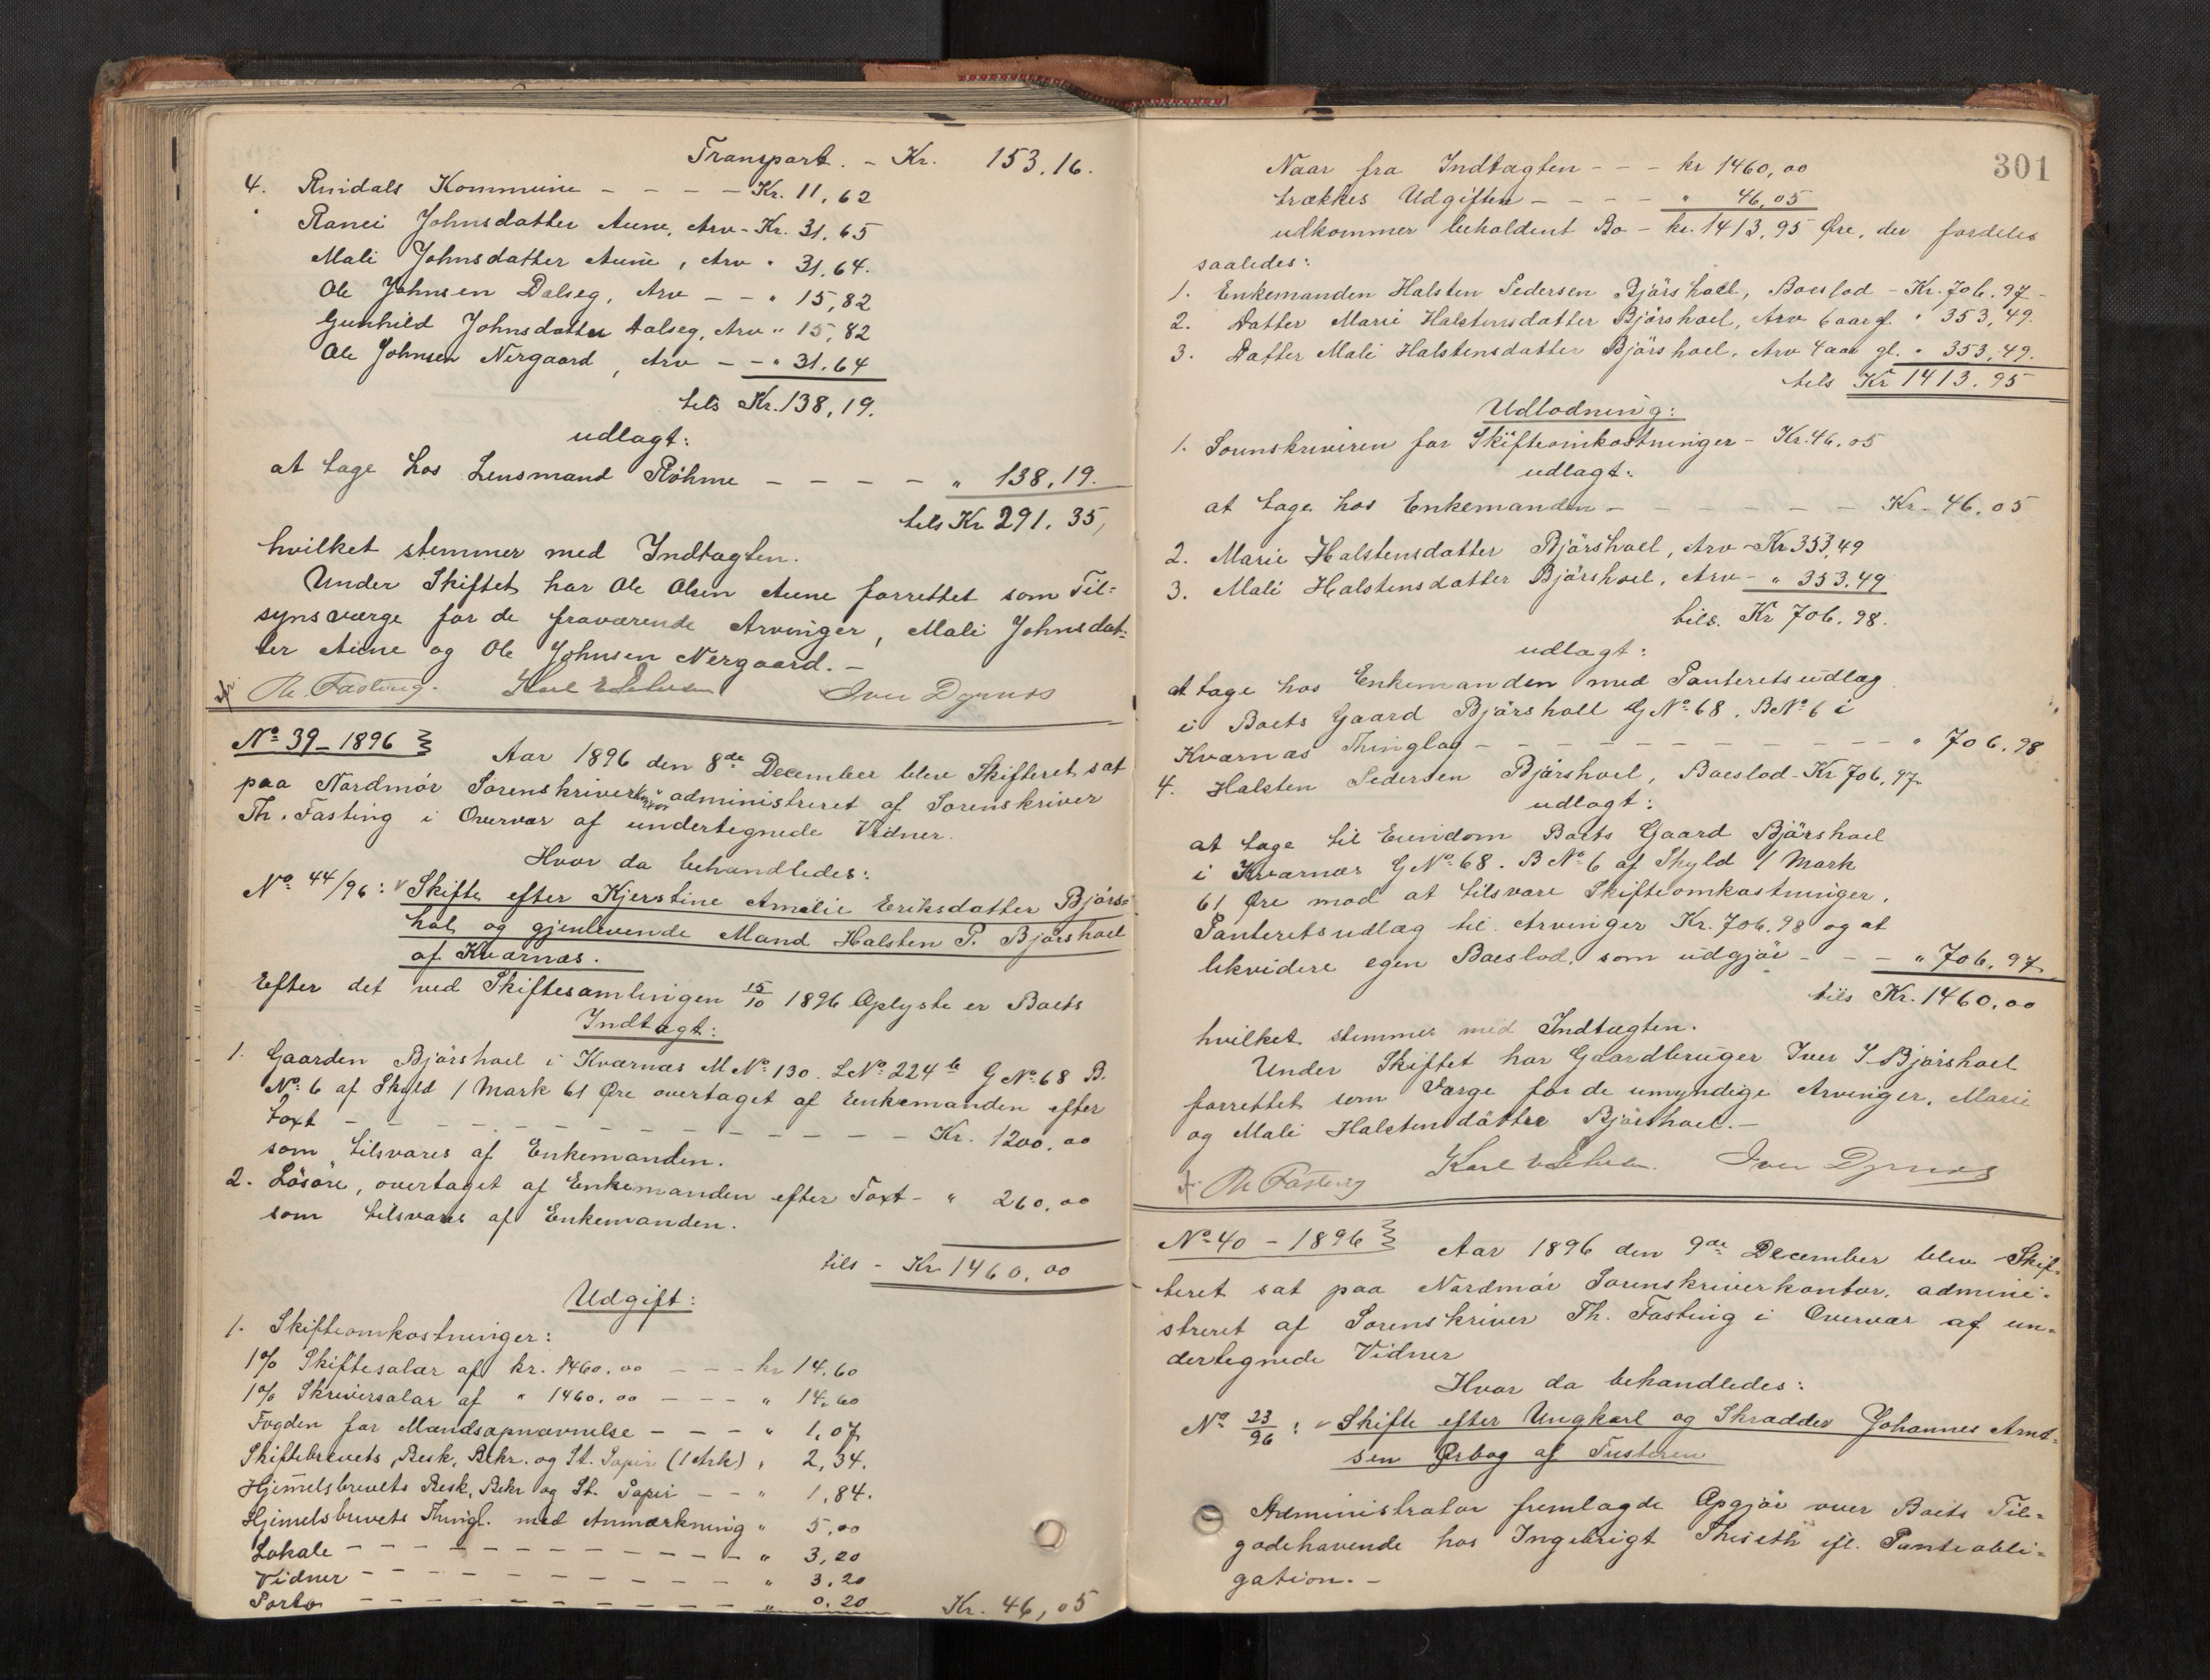 Transport. - Kr. 153.16.
4. Rindals Kommune - - - - Kr. 11,62
Ranei Johnsdatter Aune, Arv - Kr. 31.65
Mali Johnsdatter Aune, Arv " 31.64.
Ole Johnsen Dalseg, Arv - - " 15,82
Gunhild Johnsdatter Dalseg, Arv " 15,82
Ole Johnsen Nergaard, Arv - - " 31.64
tils Kr. 138,19.
udlagt:
at tage hos Lensmand Røhme - - - - " 138,19.
tils Kr 291. 35,
hvilket stemmer med Indtægten.
Under Skiftet har Ole Olsen Aune forrettet som Til=
synsværge for de fraværende Arvinger, Mali Johnsdat=
ter Aune og Ole Johnsen Nergaard. -
Th. Fasting. Karl Iver Dyrnes
No 39 - 1896 Aar 1896 den 8de December blev Skifteret sat
paa Nordmör Sorenskriverkontor administreret af Sorenskriver
Th. Fasting i Overvær af undertegnede Vidner.
Hvor da behandledes:
No 44/96: Skifte efter Kjerstine Amalie Eriksdatter Bjørs=
hol og gjenlevende Mand Halsten P. Bjørshoel
af Kværnæs.
Efter det ved Skiftesamlingen 15/10 1896 Oplyste er Boets
Indtægt:
1. Gaarden Bjørshoel i Kværnæs M No 130. L No 224 b G No 68 B.
No 6 af Skyld 1 Mark 61 Øre overtaget af Enkemanden efter
Taxt - - - - - - - - - - - - Kr. 1200.00
som tilsvares af Enkemanden.
2. Lösöre, overtaget af Enkemanden efter Taxt - " 260.00
som tilsvares af Enkemanden.
tils - Kr 1460.00
Udgift:
1. Skifteomkostninger:
1% Skiftesalær af kr. 1460.00 - - - kr 14.60
1% Skriversalær af " 1460.00 - - - " 14.60
Fogden for Mandsopnævnelse - - - " 1,07
Skiftebrevets Besk, Bekr. og St. Papir (1 Ark) " 2,34.
Hjemmelsbrevets Besk, Bekr og St. Papir - - " 1,84.
Hjemmelsbrevets Thingl. med Anmærkning " 5,00
Lokale - - - - - - - - - - " 3,20
Vidner - - - - - - - - - - " 3.20
Porto - - - - - - - - - - " 0.20 Kr. 46,05
301
Naar fra Indtægten - - - kr 1460,00
trækkes Udgiften - - - - " 46,05
udkommer beholdent Bo - kr. 1413,95 Øre, der fordeles
saaledes:
1. Enkemanden Halsten Pedersen Bjørshoel, Boeslod - Kr. 706.97 -
2. Datter Marie Halstensdatter Bjørshoel, Arv 6 aar gl. " 353,49.
3. Datter Mali Halstensdatter Bjørshoel, Arv 4 aar gl. " 353,49.
tils Kr 1413.95
Udlodning:
1. Sorenskriveren for Skifteomkostninger - Kr. 46.05
udlagt:
at tage hos Enkemanden - - - - - - Kr. 46.05
2. Marie Halstensdatter Bjørshoel, Arv - Kr 353,49
3. Mali Halstensdatter Bjørshoel, Arv - " 353.49
tils. Kr 706.98.
udlagt:
at tage hos Enkemanden med Panteretsudlæg
i Boets Gaard Bjørshoel G No 68. B No 6 i
Kværnæs Thinglag - - - - - - - - - - " 706.98
4. Halsten Pedersen Bjørshoel, Boeslod - Kr 706,97
udlagt:
at tage til Eiendom Boets Gaard Bjørshoel
i Kværnæs G No 68. B No 6 af Skyld 1 Mark
61 Øre mod at tilsvare Skifteomkostninger,
Panteretsudlæg til Arvinger Kr. 706.98 og at
likvidere egen Boeslod, som udgjør - - - " 706,97
tils Kr. 1460.00
hvilket stemmer med Indtægten.
Under Skiftet har Gaardbruger Iver I. Bjørshoel
forrettet som Værge for de umyndige Arvinger, Marie
og Mali Halstendöttre Bjørshoel. -
Th Fasting Karl Iver Dyrnes
No 40 - 1896 Aar 1896 den 9de December blev Skif=
teret sat paa Nordmør Sorenskriverkontor, admini=
streret af Sorenskriver Th. Fasting i Overvær af un=
dertegnede Vidner
Hvor da behandledes:
No 23/96: Skifte efter Ungkarl og Skrædder Johannes Arnt=
sen Ørbog af Tusteren
Administrator fremlagde Opgjør over Boets Til=
godehavende hos Ingebrigt Thiseth ifl. Panteobli=
gation. -